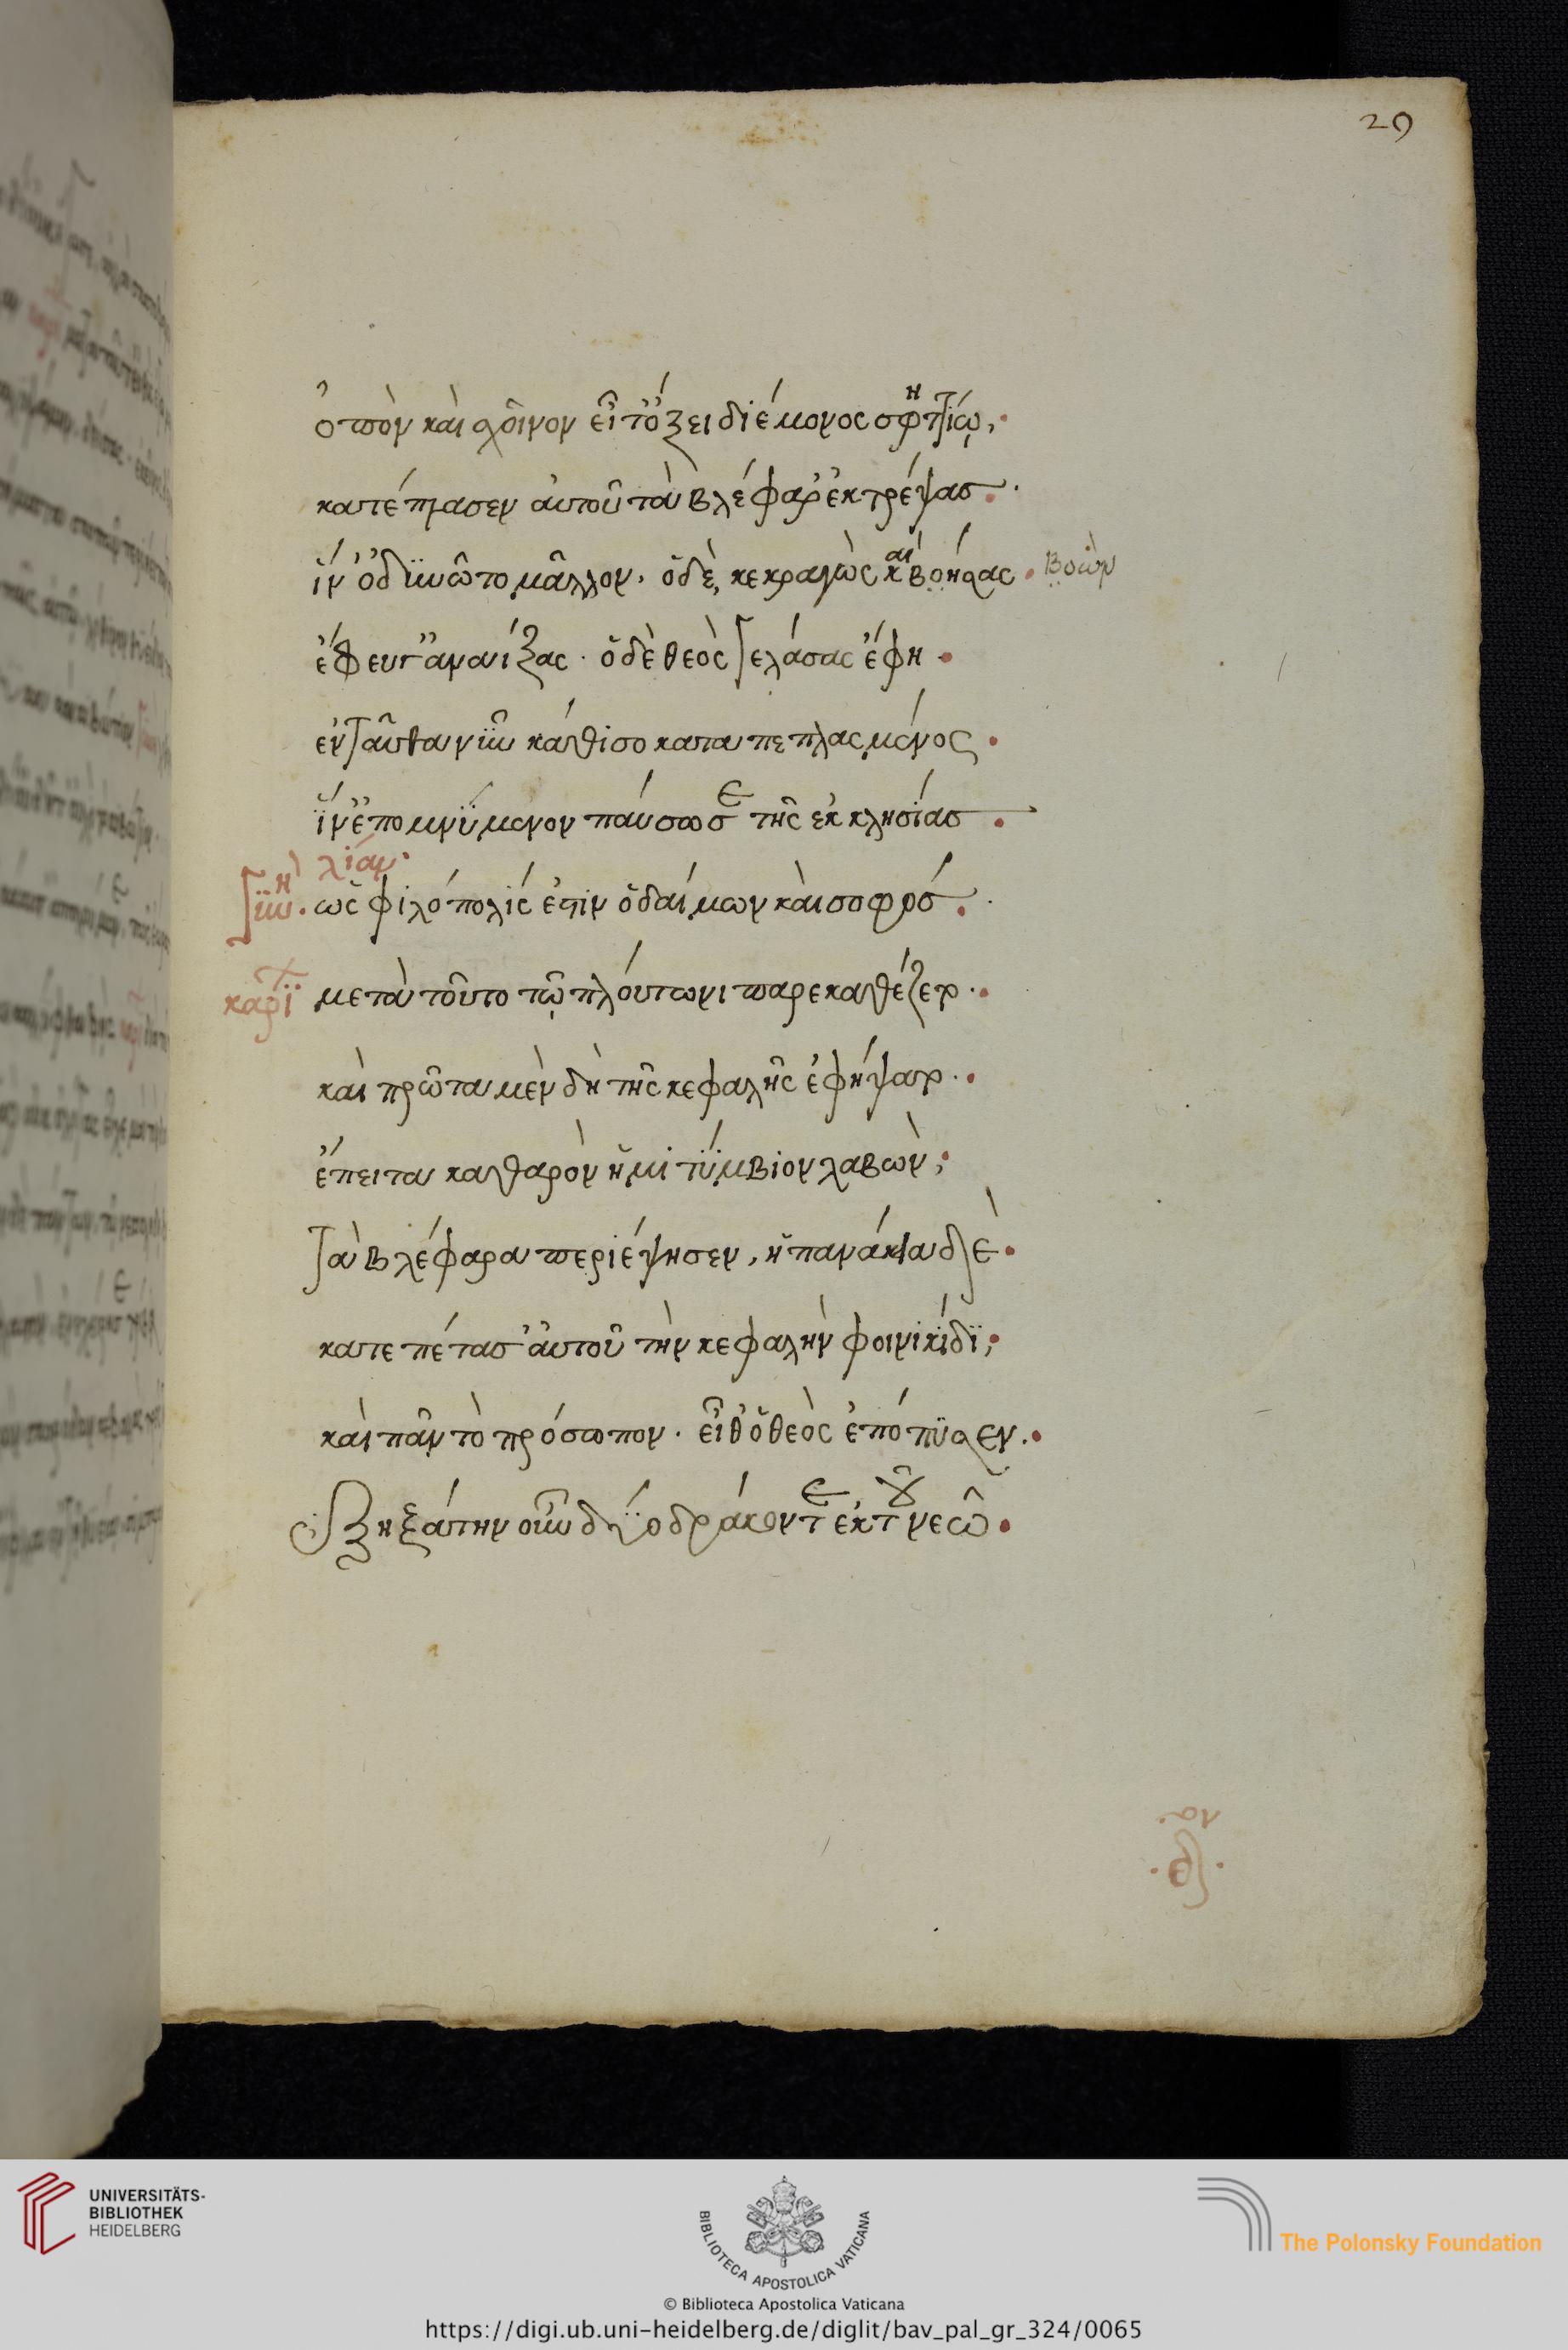 29
ὀπὸν καὶ σχῖνον εἶτ ὄξει διέμενος σφηττίῳ,
κατέπλασεν αὐτοῦ τὰ βλέφαρ ἐκτρέψας.
ἵν ὀδυνῶτο μᾶλλον. ὁ δὲ κεκραγὼς καὶ βοήσας. βοῶν
ἔφευγ ἀναΐξας. ὁ δὲ θεὸς γελάσας ἔφη.
ἐνταῦθα νῦν κάθισο καταπεπλασμένος.
ἵν ἐπομνύμενον παύσω σε τῆς ἐκκλησίας.
λίαν.
γυνὴ. ὡς φιλόπολίς ἐστιν ὁ δαίμων καὶ σοφός.
καρί μετὰ τοῦτο τῷ πλούτωνι παρεκαθέζετο.
καὶ πρῶτα μὲν δὴ τῆς κεφαλῆς ἐφήψατο.
ἔπειτα καθαρὸν ἡμιτύμβιον λαβὼν,
τὰ βλέφαρα περιέψησεν, ἡ πανάκεια δὲ.
κατεπέτασ αὐτοῦ τὴν κεφαλὴν φοινικίδι,
καὶ πᾶν τὸ πρόσωπον. εἶθ ὁ θεὸς ἐπόππυσεν.
ἐξηξάτην οὖν δύο δράκοντε ἐκ τοῦ νεῶ.
UNIVERSITÄTS-
BIBLIOTHEK
HEIDELBERG
BIBLIOTECA APOSTOLICA VATICANA
© Biblioteca Apostolica Vaticana
The Polonsky Foundation
https://digi.ub.uni-heidelberg.de/diglit/bav_pal_gr_324/0065